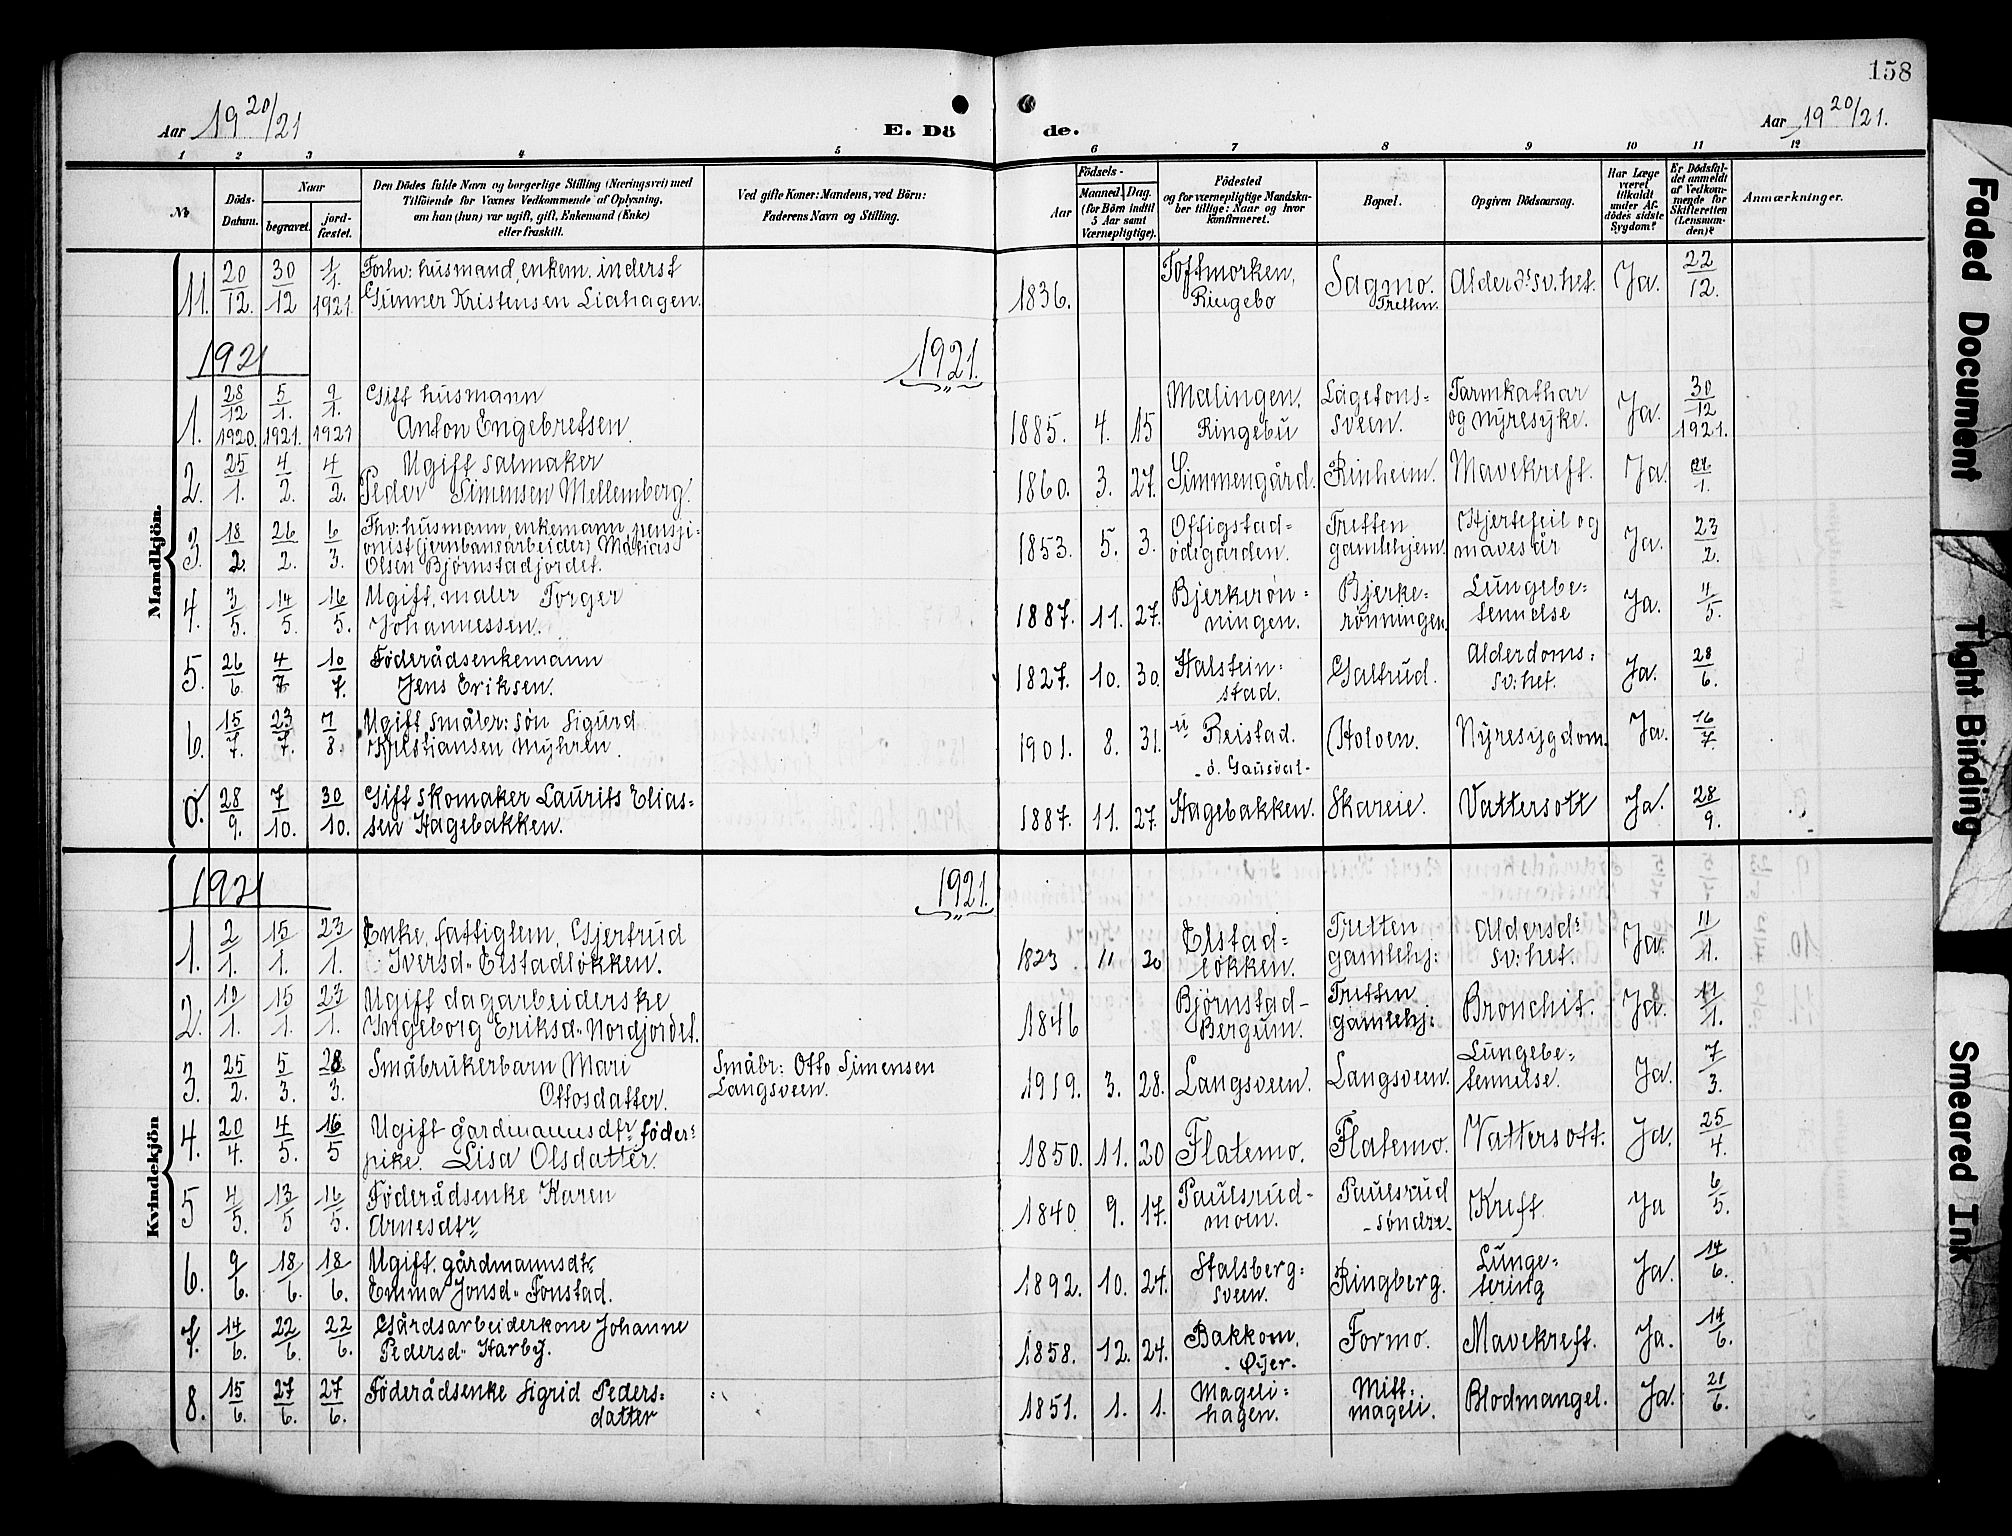 158
Aar 1920/21
E. Dö
de.
Aar 1920/21.
1 2 3 4 5 6 7 8 9 10 11 12
No
Döds-Datum.
Naar
begravet.
jord-fæstet.
Den Dödes fulde Navn og borgerlige Stilling (Næringsvei) med
Tilföiende for Voxnes Vedkommende af Oplysning,
om han (hun) var ugift, gift, Enkemand (Enke)
eller fraskilt.
Ved gifte Koner: Mandens, ved Börn:
Faderens Navn og Stilling.
Födsels-
Aar
Maaned. Dag.
(for Börn indtil
5 Aar samt
Værnepligtige).
Födested
og for værnepligtige Mandska-
ber tillige: Naar og hvor
konfirmeret.
Bopæl.
Opgiven Dödsaarsag.
Har Læge
været
tilkaldt
under Af-
dödes sidste
Sygdom?
Er Dödsfal-
det anmeldt
af Vedkom-
mende for
Skifteretten
(Lensman-
den)?
Anmærkninger.
Mandkjön.
11. 20/12. 30/12 1/1. 1921. Forhv: husmand, enkem. inderst
Gunner Kristensen Liahagen. 1836. Toftmorken, Ringebo Sagmo. Tretten. Alderd.s sv.het. Ja. 22/12.
1921 1921.
1. 28/12 1920. 5/1. 1921. 9/1. 1921 Gift husmann
Anton Engebretsen. 1885. 4. 15 Malingen, Ringebu Lågetons=sveen. Tarmkathar og nyresyke. Ja. 30/12 1921.
2. 25/1. 4/2. 4/2. Ugift salmaker
Peder Simensen Mellemberg. 1860. 3. 27. Simmengård. Rinheim. Mavekreft. Ja. 26/1.
3. 18/2. 26/2. 6/3. Fhv: husmann, enkemann, pensji=
onist (jernbanearbeider) Matias
Olsen Bjørnstadjordet. 1853. 5. 3. Offigstad=ødegården. Tretten gamlehjem. Hjertefeil og mavesår Ja. 23/2.
4. 3/5. 14/5. 16/5. Ugift, maler Torger
Johannessen. 1887. 11. 27. Bjerkerøn=ningen. Bjerke=rønningen. Lungebe=tennelse Ja. 4/5.
5. 26/6. 4/7 10/7. Föderådsenkemann
Jens Eriksen. 1827. 10. 30. Halstein=stad. Galtrud. Alderdoms=sv:het. Ja. 28/6.
6. 15/7. 23/7. 7/8. Ugift småbr: søn Sigurd
Kristiansen Myhren. 1901. 8. 31. Reistad. ö. Gausdal- Holoen. Nyresygdom. Ja. 16/7.
28/9. 7/10. 30/10. Gift skomaker Laurits Elias=
sen Hagebakken. 1887. 11. 27. Hagebakken. Skareie. Vattersott Ja. 28/9.
Kvindekjön
1921 1921.
1. 2/1. 15/1. 23/1. Enke, fattiglem, Gjertrud
Iversd" Elstadløkken. 1823 11 20 Elstad=løkken. Tretten gamlehj: Aldersd=sv:het. Ja. 11/1.
2. 10/1. 15/1. 23/1. Ugift dagarbeiderske
Ingeborg Eriksd" Nordjordet. 1846 Bjørnstad-Bergum. Tretten gamlehj: Bronchit. Ja. 11/1.
3. 25/2. 5/3. 28/3. Småbrukerbarn Mari
Ottosdatter. Småbr: Otto Simensen
Langsveen. 1919. 3. 28. Langsveen. Langsveen. Lungebe=tennelse. Ja. 7/3.
4. 20/4. 4/5. 16/5 Ugift gårdmannsdtr föder=
pike. Lisa Olsdatter. 1850. 11. 20 Flatemo. Flatemo. Vattersott. Ja. 25/4.
5 4/5. 13/5 16/5. Föderådsenke Karen
Arnesdtr 1840 9. 17. Paulsrud-moen. Paulsrud -søndre- Kreft Ja 6/5.
6. 9/6. 18/6. 18/6. Ugift, gårdmannsdtr
Emma Jonsd" Fonstad. 1892. 10. 24. Stalsberg=sveen. Ringberg. Lunge=tering Ja. 14/6.
7. 14/6. 22/6. 22/6. Gårdsarbeiderkone Johanne
Pedersd" Harby. 1858. 12. 24. Bakkom, -Øyer- Formo. Mavekreft. Ja. 14/6.
8. 15/6. 27/6. 27/6. Föderådsenke Sigrid Peders=
datter 1851. 1. 1. Mageli=hagen. Mitt=mageli. Blodmangel. Ja. 21/6.
Faded Document
Tight Binding
Smeared Ink